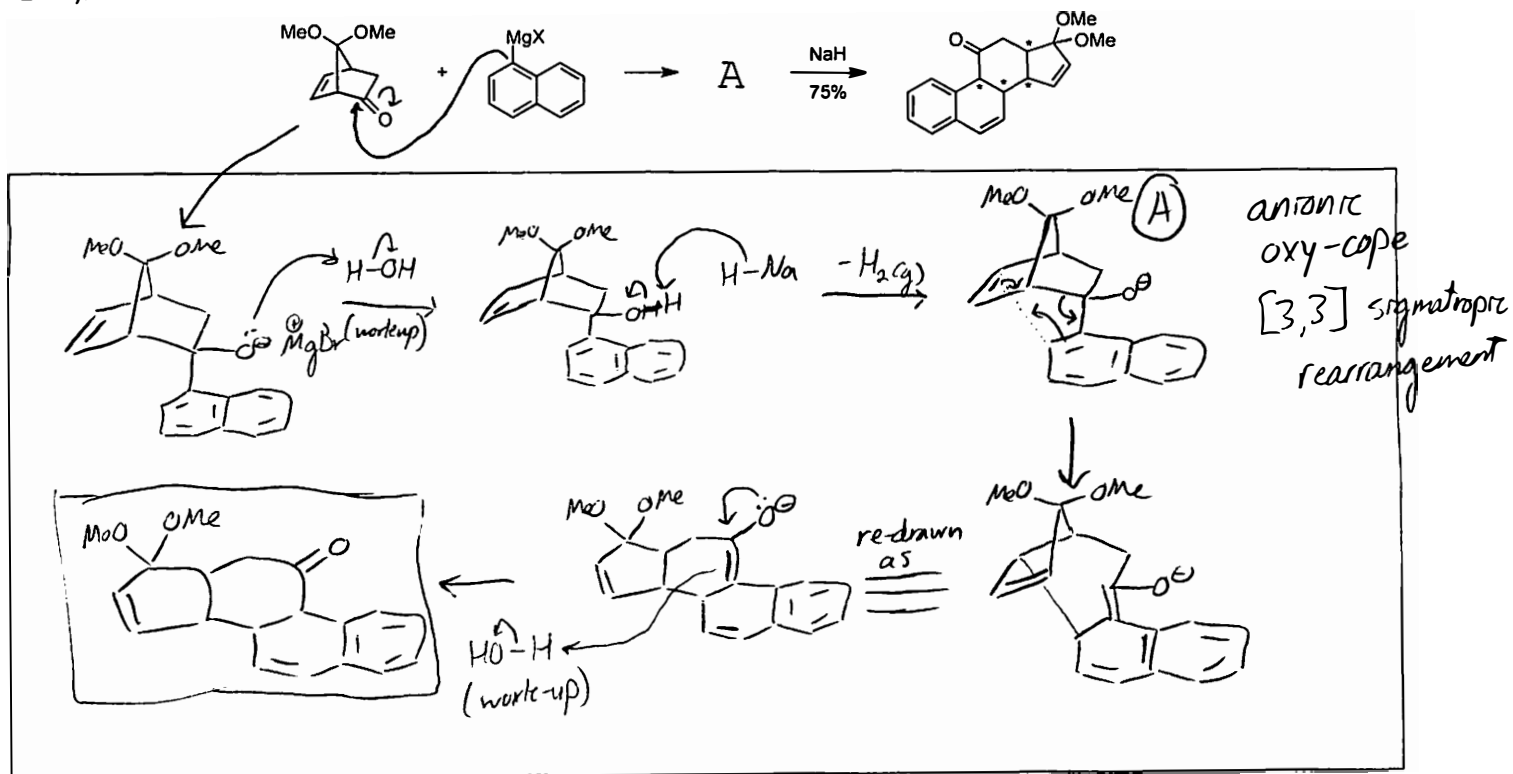 MeO OMe
MgX
+
O
A
NaH
75%
O
OMe
OMe
*
*
*
MeO OMe
H-OH
O⊖
⊕
MgBr (workup)
MeO OMe
OH H
H-Na
-H2(g)
MeO OMe
A
O⊖
anionic
oxy-cope
[3,3] sigmatropic
rearrangement
MeO OMe
O⊖
re-drawn
as
MeO OMe
O⊖
HO-H
(work-up)
MeO OMe
O